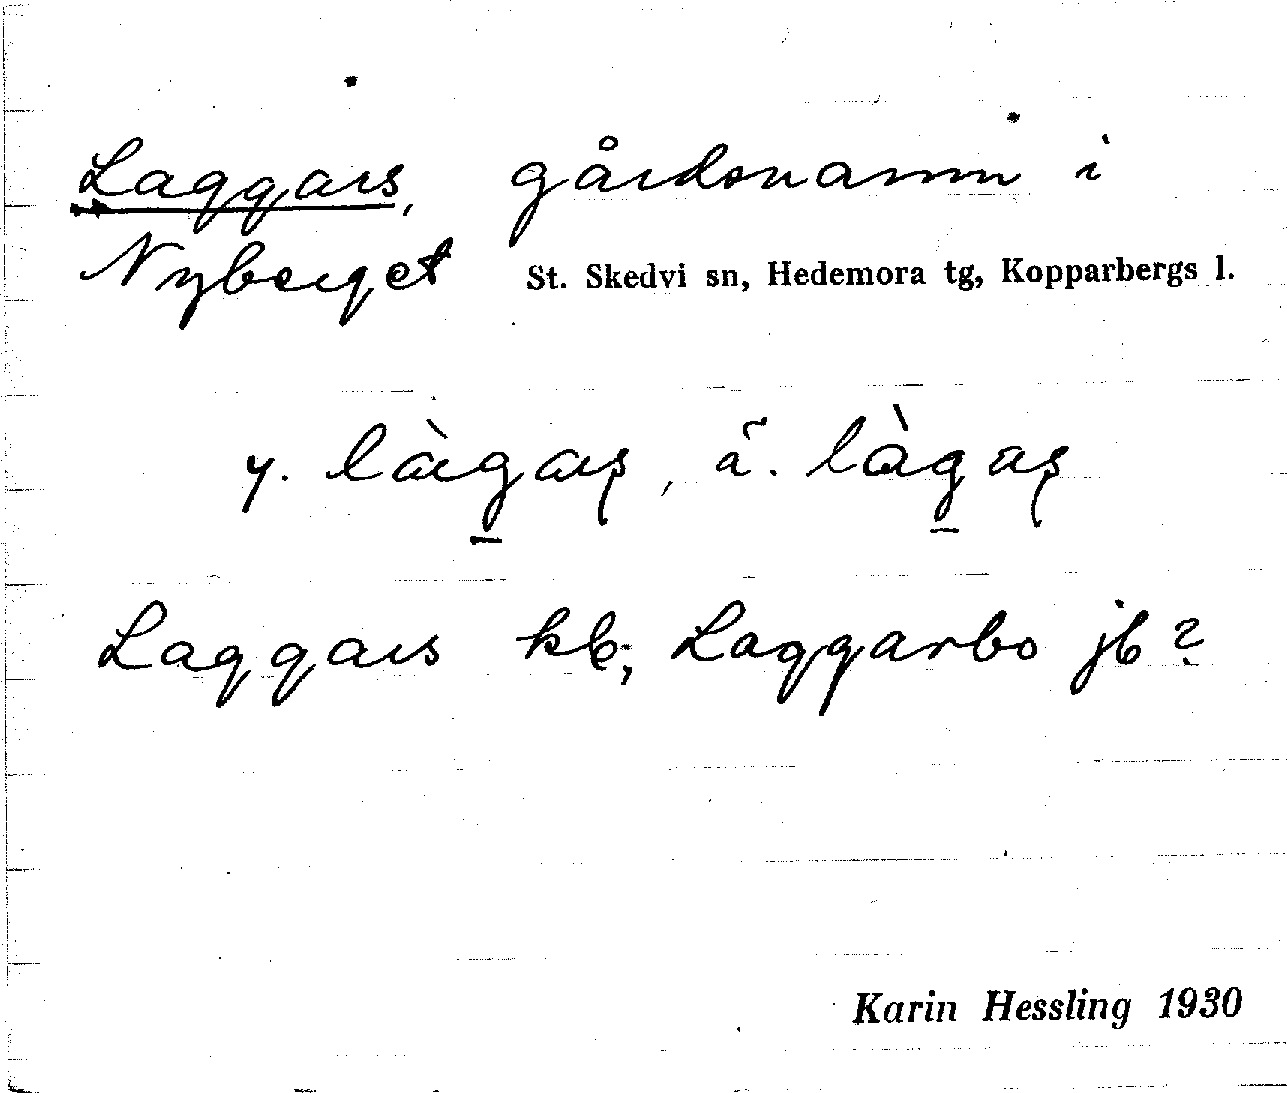 Laggars, gårdsnamn i
Nyberget St. Skedvi sn, Hedemora tg, Kopparbergs l.
y. làgaş, ä. làgaş
Laggars kb; Laggarbo jb?
Karin Hessling 1930